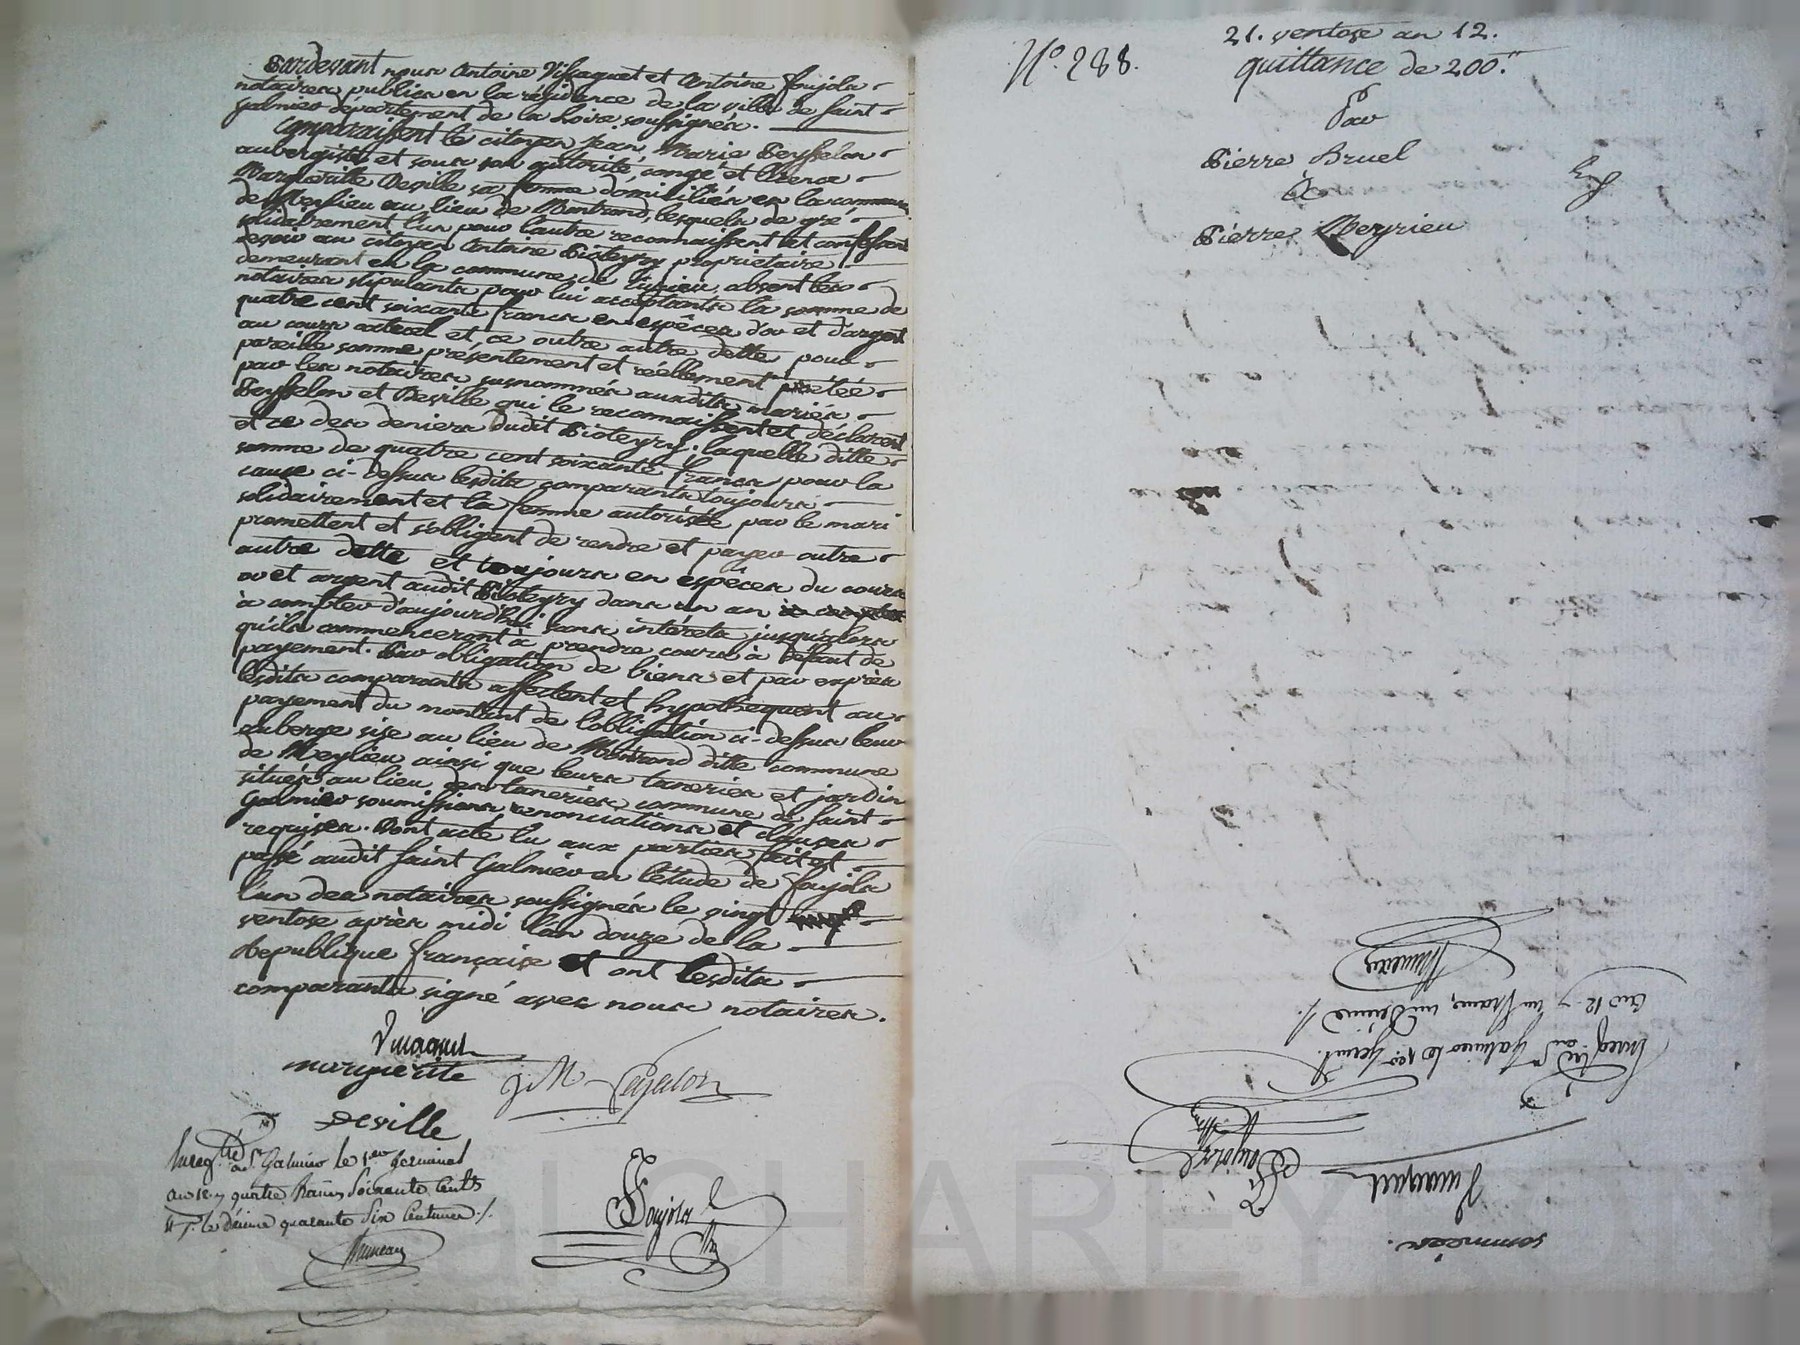 Pardevant nous Antoine Vissaguet et Antoine foujols
notaires publics en la résidence de la ville de Saint
galmier département de la Loire soussignés.
Comparaissent le citoyen Jean Marie Peysselon
aubergiste et sous son autorité, congé et licence
Marguerite Deville sa femme domiciliés en la commune
de Meylieu au lieu de Montrond, lesquels de gré
solidairement l'un pour l'autre reconnaissent et confessent
devoir au citoyen Antoine Pioteyry propriétaire
demeurant en la commune de absent les
notaires stipulants pour lui acceptants la somme de
quatre cent soixante francs en espèces d'or et d'argent
au cours actuel et ce outre autre dette pour
pareille somme présentement et réellement prêtée
par les notaires susnommés auxdits mariés
Peysselon et Deville qui le reconnaissent et déclarent
et ce des deniers dudit Pioteyry; laquelle ditte
somme de quatre cent soixante francs pour la
cause ci-dessus lesdits comparants toujours
solidairement et la femme autorisée par le mari
promettent et s'obligent de rendre et payer outre
autre dette et toujours en espèces du cours
or et argent audit Pioteyry dans un an
à compter d'aujourd'hui sans intérets jusqu'alors
qu'ils commenceront à prendre cours à défaut de
payement. Par obligation de biens et par exprès
lesdits comparants affectent et hypothequent au
payement du montant de l'obligation ci-dessus leur
auberge sise au lieu de Montrond ditte commune
de Meylieu ainsi que leurs taneries et jardin
situés au lieu des taneries commune de Saint
Galmier soumissions renonciations et clauses
requises. Dont acte lu aux parties fait et
passé audit Saint Galmier en l'étude de foujols
l'un des notaires soussignés le vingt
ventose après midi l'an douze de la
Republique française et ont lesdits
comparants signé avec nous notaires.
Vissaguet
marguerite
J M Peyselon
Deville
Enregtré au St Galmier le 1er Germinal
an 12, quatre francs soixante cents
le décime quarante six centimes /.
Foujols
N° 288.
21. ventose an 12.
quittance de 200.ᶠ
Par
Pierre Bruel
À
Pierre Meyrieu
Enreg
sommières.
Vissaguet
Foujols
Enregtré au St Galmier le 1er Germinal.
an 12, un franc, un Décime /.